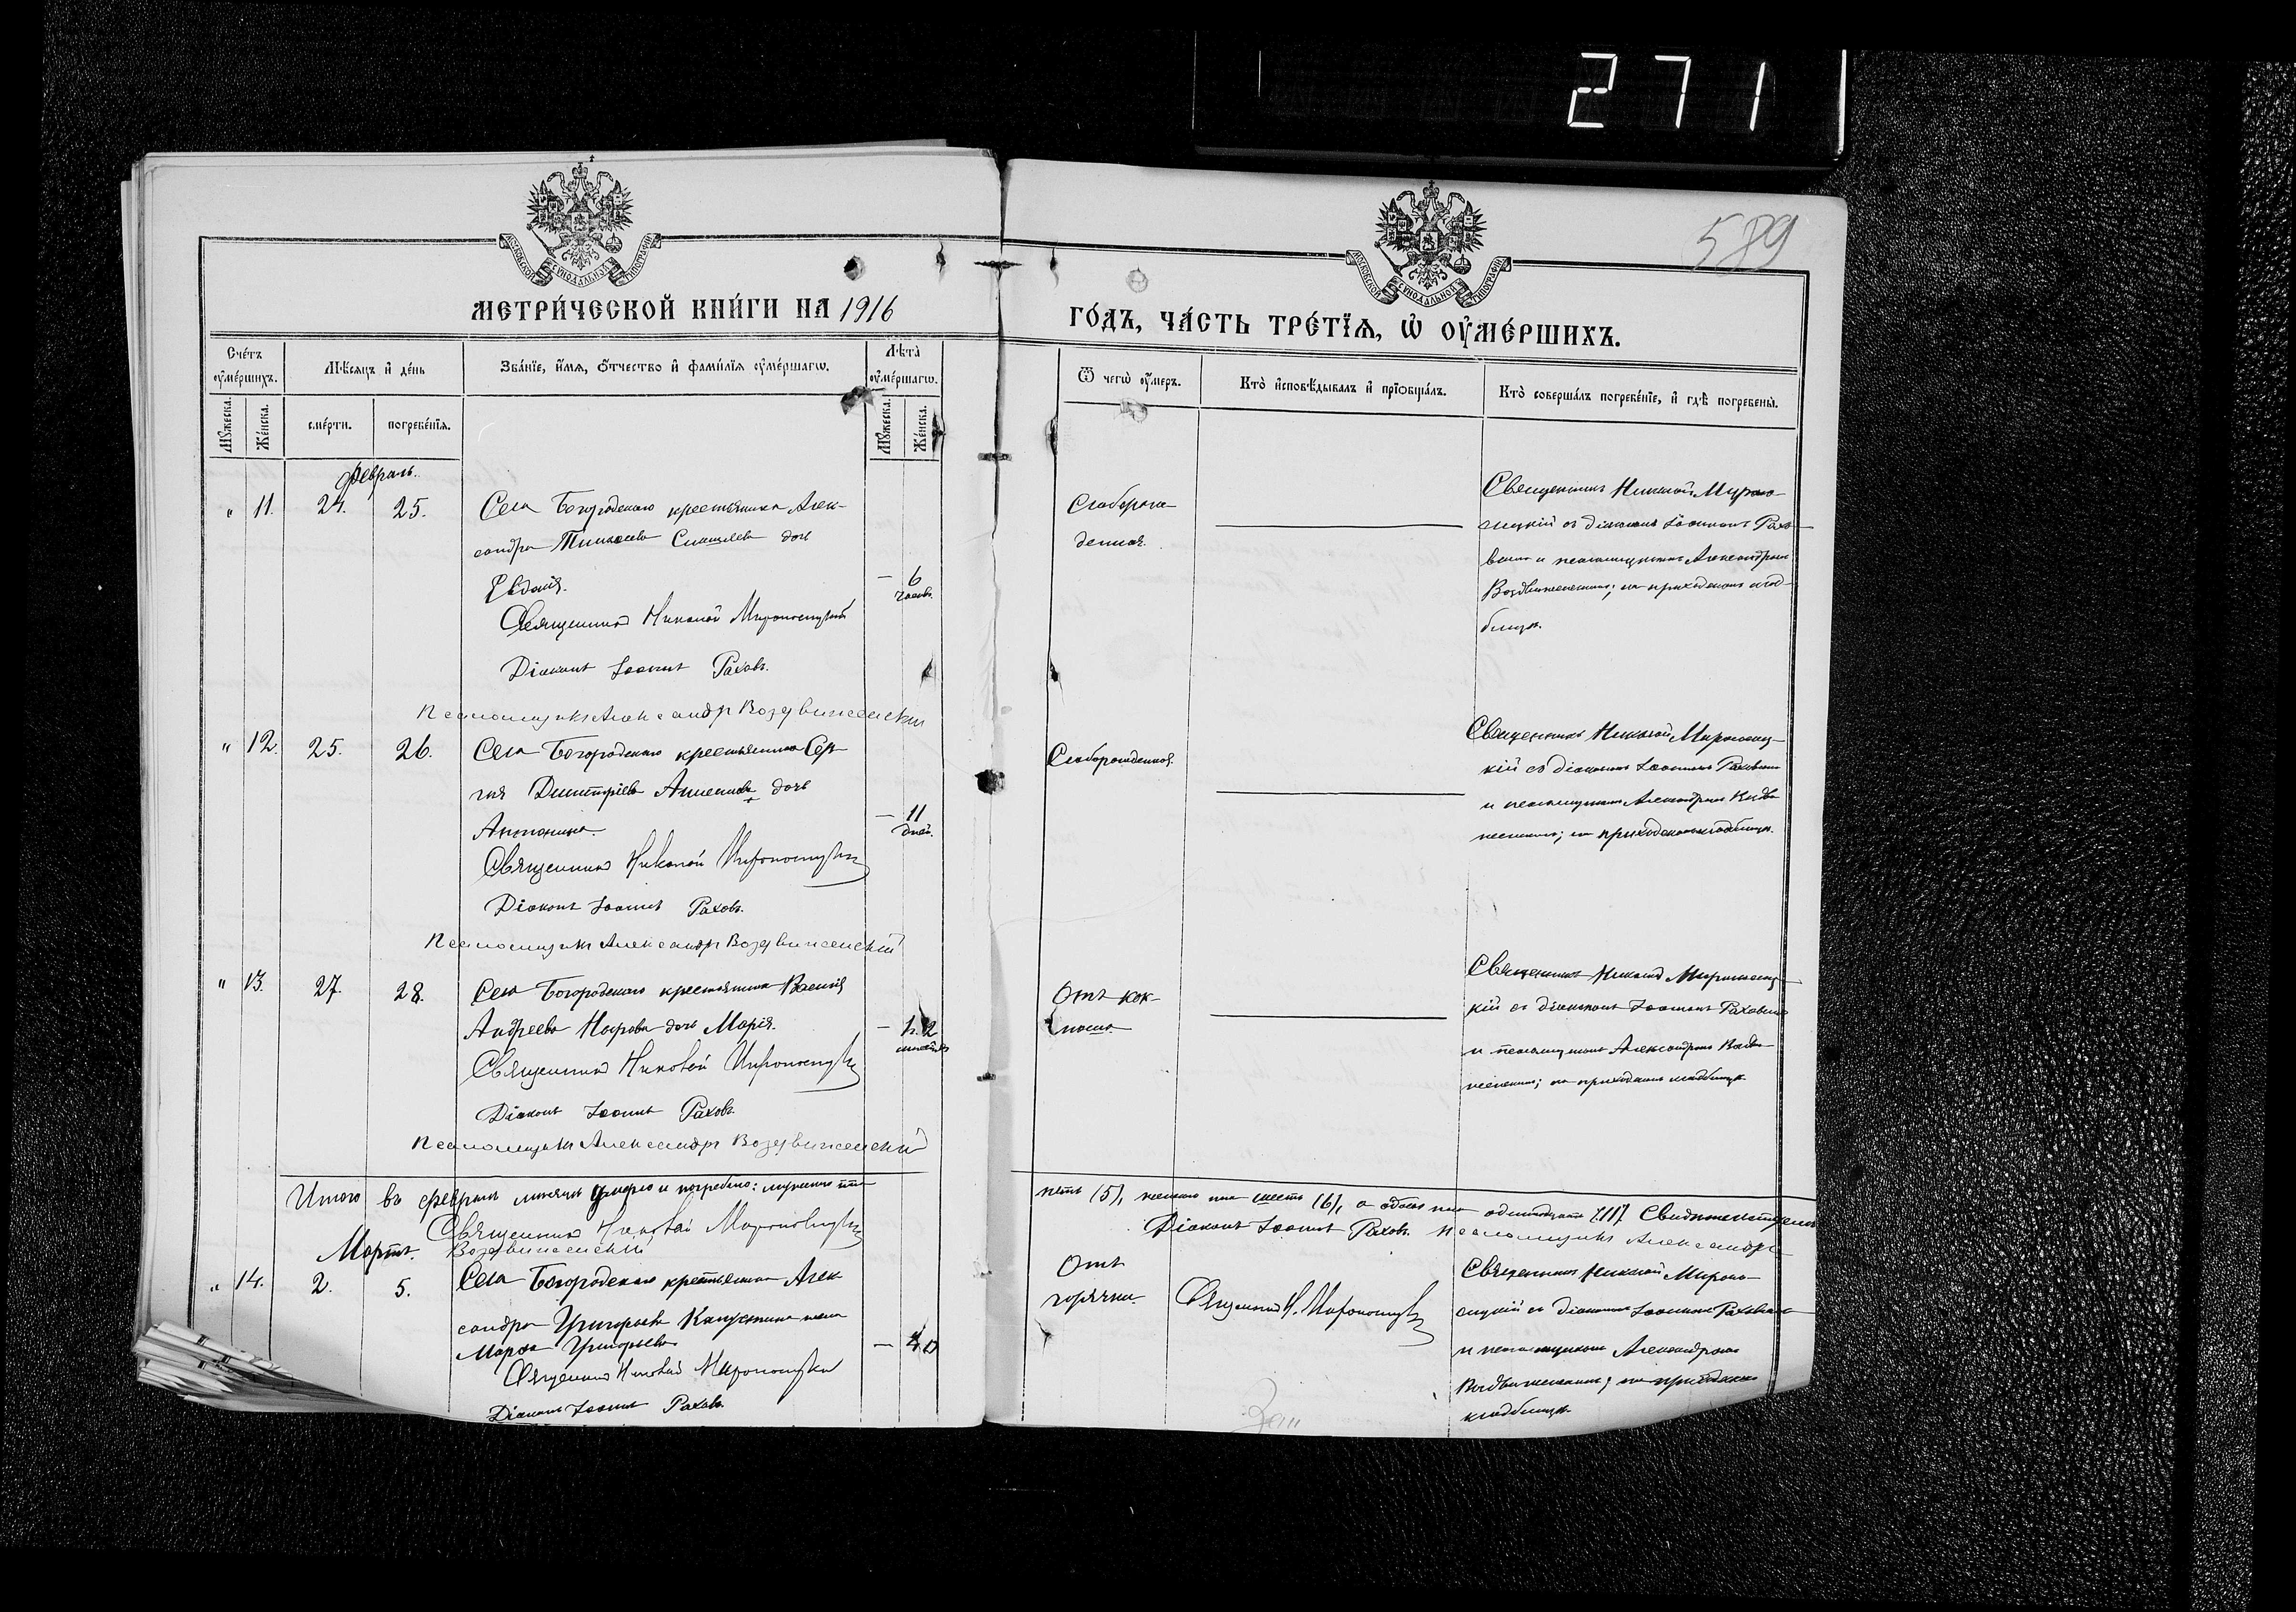 271
589
МОСКОВСКОЙ СѴНОДАЛЬНОЙ ТИПОГРАФІИ
МОСКОВСКОЙ СѴНОДАЛЬНОЙ ТИПОГРАФІИ
МЕТРИ́ЧЕСКОЙ КНИ́ГИ НА 1916
ГО́ДЪ, ЧА́СТЬ ТРЕ́ТЇѦ, Ѡ҆ ОУ҆МЕ́РШИХЪ.
Сче́тъ оу҆ме́ршихъ.
Мѣ́сѧцъ и҆ де́нь
Зва́нїе, и҆́мѧ, ѻ҆́тчество и҆ фами́лїѧ оу҆ме́ршагѡ.
Лѣ́та оу҆ме́ршагѡ.
Ѿ чегѡ̀ оу҆́меръ.
Кто̀ и҆сповѣ́дывалъ и҆ прїѡбща́лъ.
Кто̀ соверша́лъ погребе́нїе, и҆ гдѣ̀ погребены̀.
Мꙋ́жеска.
Же́нска.
сме́рти.
погребе́нїѧ.
Мꙋ́жеска.
Же́нска.
Февраль.
" 11. 24. 25.
Села Богородскаго крестьянина Алек-
сандра дочь
Евдокія.
— 6 часовъ.
Священникъ Николай Мироносицкій
Діаконъ Іоаннъ Раховъ.
Псаломщикъ Александръ Воздвиженскій
Слаборож-
денная.
Священникъ Николай Мироно-
сицкій съ діакономъ Іоанномъ Рахо-
вымъ и псаломщикомъ Александромъ
Воздвиженскимъ; на приходскомъ клад-
бищѣ.
" 12. 25. 26.
Села Богородскаго крестьянина Сер-
гія Димитріева дочь
Антонина.
— 11 дней.
Священникъ Николай Мироносицкій
Діаконъ Іоаннъ Раховъ.
Псаломщикъ Александръ Воздвиженскій
Слаборожденная.
Священникъ Николай Мироносиц-
кій съ діакономъ Іоанномъ Раховымъ
и псаломщикомъ Александромъ Воздви-
женскимъ; на приходскомъ кладбищѣ.
" 13. 27. 28.
Села Богородскаго крестьянина Василія
Андреева дочь Марія.
Священникъ Николай Мироносицкій
Діаконъ Іоаннъ Раховъ.
Псаломщикъ Александръ Воздвиженскій
Отъ кок-
люша.
Священникъ Николай Мироносиц-
кій съ діакономъ Іоанномъ Раховымъ
и псаломщикомъ Александромъ Воздви-
женскимъ; на приходскомъ кладбищѣ.
Итого въ февралѣ мѣсяцѣ умерло и погребено: мужеска пола
пять (5), женска пола шесть (6), а обоего пола одиннадцать (11)
Священникъ Николай Мироносицкій
Діаконъ Іоаннъ Раховъ. Псаломщикъ Александръ
Воздвиженскій
Мартъ.
" 14. 2. 5.
Села Богородскаго крестьянина Алек-
сандра Григорьева Капустина жена
Григорьева
— 40
Священникъ Николай Мироносицкій
Діаконъ Іоаннъ Раховъ.
Отъ
горячки.
Священникъ Н. Мироносицкій
Священникъ Николай Мироно-
сицкій съ діакономъ Іоанномъ Раховымъ
и псаломщикомъ Александромъ
Воздвиженскимъ; на приходскомъ
кладбищѣ.